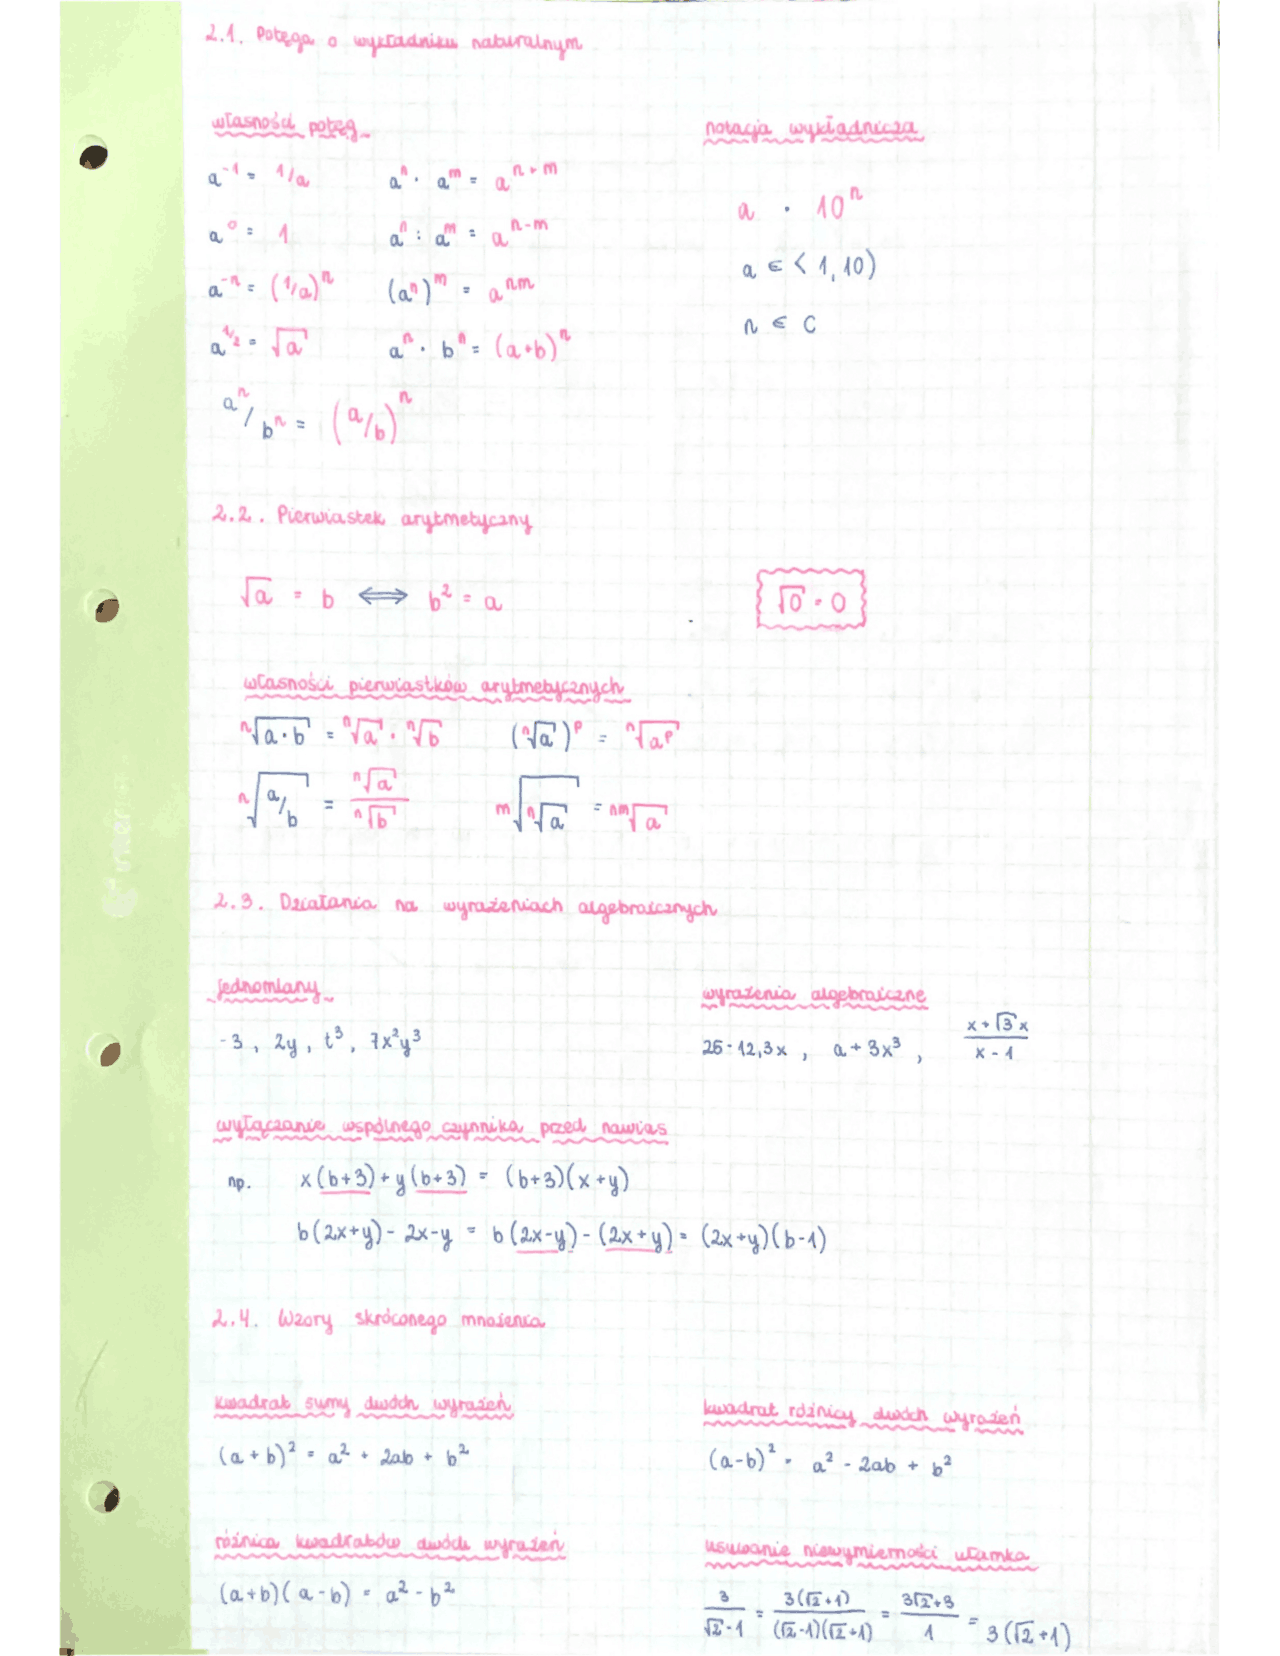 2.1. Potęga o wykładniku naturalnym
własności potęg
a⁻¹ = 1/a    aⁿ · aᵐ = aⁿ⁺ᵐ
a⁰ = 1    aⁿ : aᵐ = aⁿ⁻ᵐ
a⁻ⁿ = (1/a)ⁿ    (aⁿ)ᵐ = aⁿᵐ
a^1/2 = √a    aⁿ · bⁿ = (a·b)ⁿ
aⁿ/bⁿ = (a/b)ⁿ
notacja wykładnicza
a · 10ⁿ
a ∈ < 1, 10)
n ∈ C
2.2. Pierwiastek arytmetyczny
√a = b ⟺ b² = a
√0 = 0
własności pierwiastków arytmetycznych
ⁿ√(a·b) = ⁿ√a · ⁿ√b    (ⁿ√a)ᵖ = ⁿ√aᵖ
ⁿ√(a/b) = ⁿ√a / ⁿ√b    ᵐ√(ⁿ√a) = ⁿᵐ√a
2.3. Działania na wyrażeniach algebraicznych
jednomiany
-3 , 2y , t³ , 7x²y³
wyrażenia algebraiczne
25-12,3x , a + 3x³ , (x + √3 x)/(x - 1)
wyłączanie wspólnego czynnika przed nawias
np. x(b+3) + y(b+3) = (b+3)(x+y)
b(2x+y) - 2x-y = b(2x-y) - (2x+y) = (2x+y)(b-1)
2.4. Wzory skróconego mnożenia
kwadrat sumy dwóch wyrażeń
(a+b)² = a² + 2ab + b²
kwadrat różnicy dwóch wyrażeń
(a-b)² = a² - 2ab + b²
różnica kwadratów dwóch wyrażeń
(a+b)(a-b) = a² - b²
usuwanie niewymierności ułamka
3/(√2-1) = 3(√2+1)/((√2-1)(√2+1)) = (3√2+3)/1 = 3(√2+1)